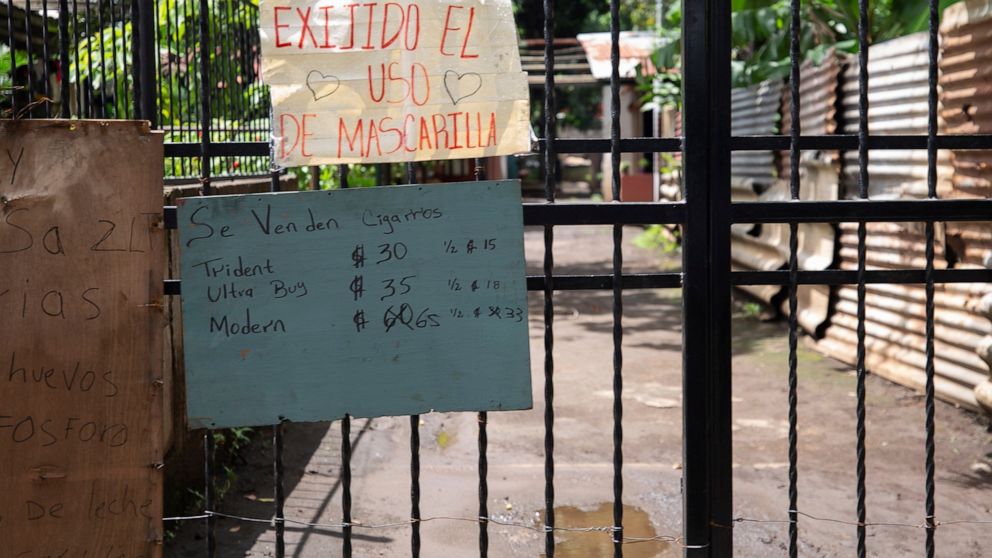 EXIJIDO EL
USO
DE MASCARILLA
Se Venden Cigarrios
Trident $ 30 ½ $ 15
Ultra Buy $ 35 ½ $ 18
Modern $ 65 ½ $ 33
y
Sa 2LT
rias
huevos
FOSForo
De leche